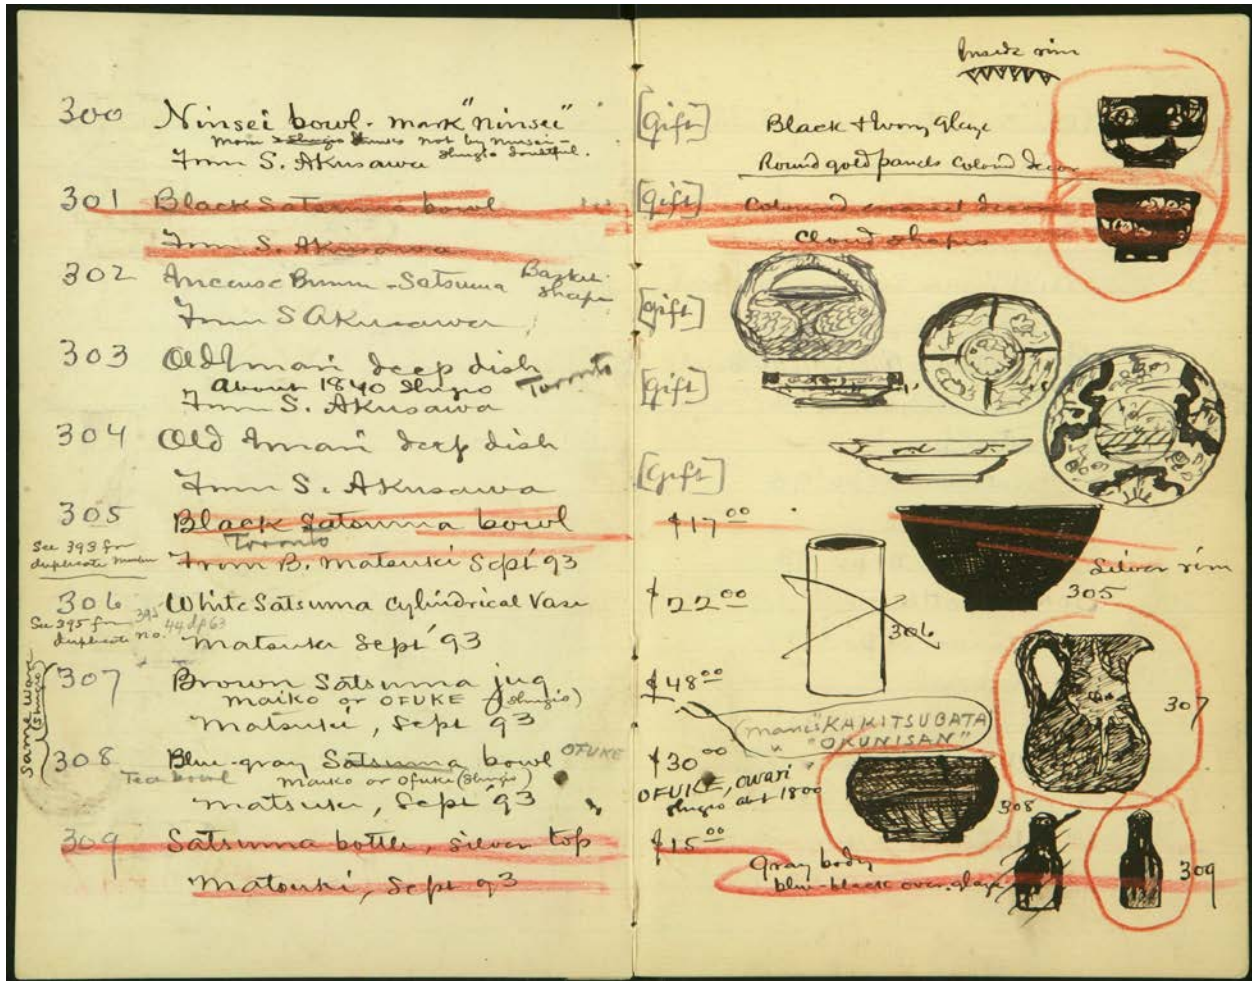 300 Ninsei bowl - mark "ninsei"
not by ninsei -
From S. Akusawa Shugio doubtful.
301 Black Satsuma bowl
From S. Akusawa
302 Incense Burner - Satsuma Basket shape
From S Akusawa
303 Old Imari deep dish
About 1840 Shugio Toronto
From S. Akusawa
304 Old Imari deep dish
From S. Akusawa
305 Black Satsuma bowl
Toronto
See 393 for
duplicate number
From B. Matsuki Sept '93
306 White Satsuma Cylindrical Vase
See 395 for
duplicate no.
Matsuki Sept '93
Same ware
(Shugio)
307 Brown Satsuma jug
maiko or OFUKE (Shugio)
Matsuki, Sept 93
308 Blue-gray Satsuma bowl OFUKE
Tea bowl maiko or Ofuke (Shugio)
Matsuki, Sept '93
309 Satsuma bottle, silver top
Matsuki, Sept 93
Inside rim
[Gift] Black + Ivory glaze
Round gold panels colored decor
[Gift] Coloured enamel decor
Cloud shapes
[Gift]
[Gift]
[Gift]
$17 00
Silver rim
305
$22 00
306
$48 00
307
"KAKITSUBATA
"OKUNISAN"
$30 00
OFUKE, Owari
Shugio abt 1800
308
$15 00
Gray body
blue-black over-glaze
309